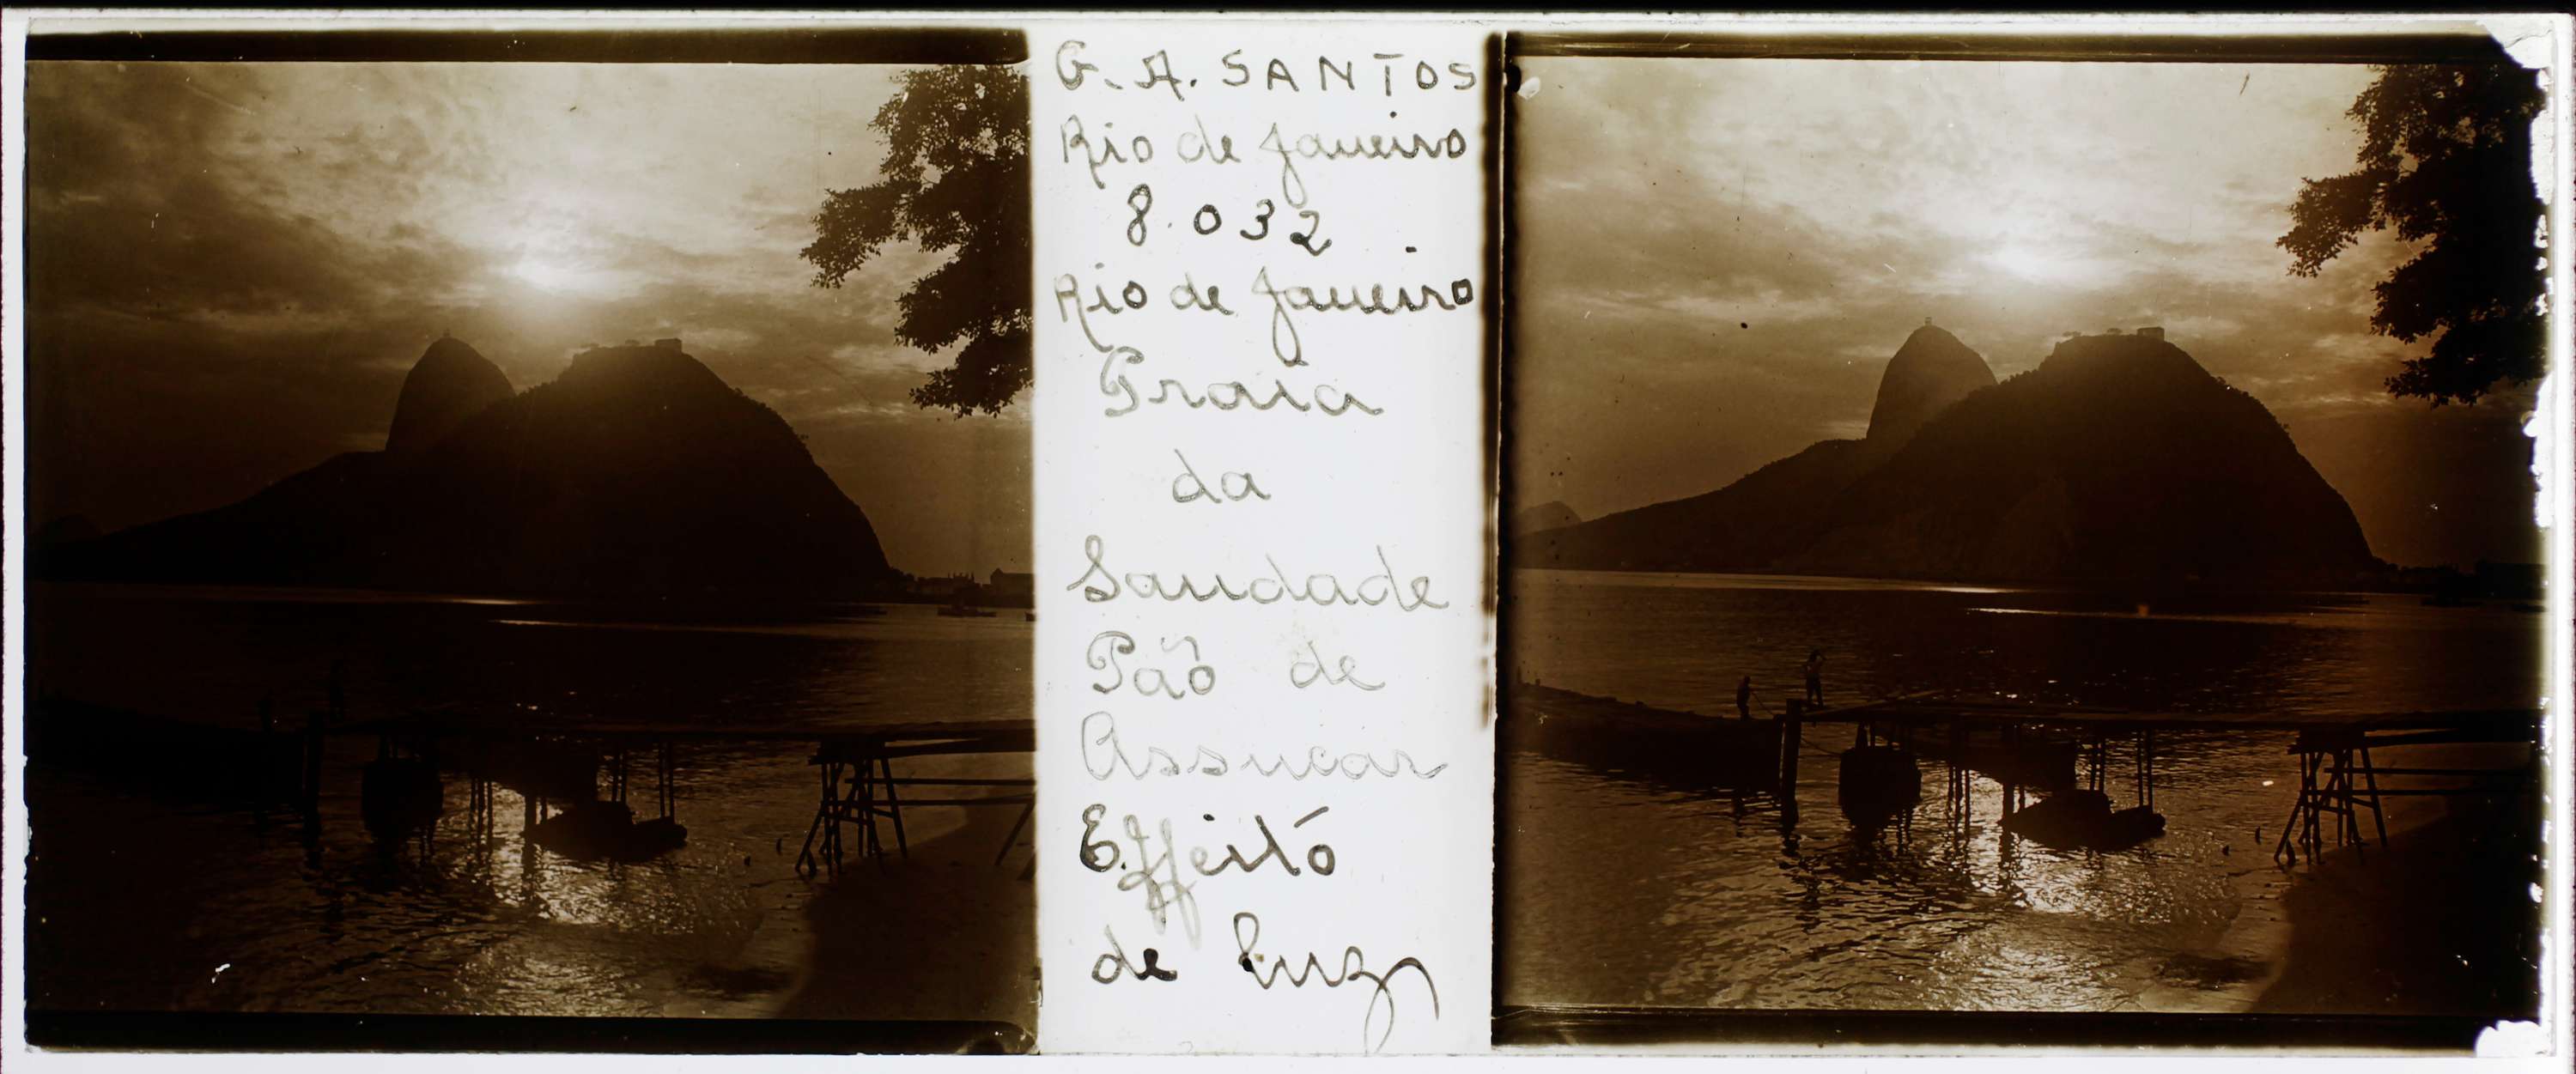 G. A. SANTOS
Rio de Janeiro
8.032
Rio de Janeiro
Praia
da
Saudade
Pão de
Assucar
Effeito
de luz